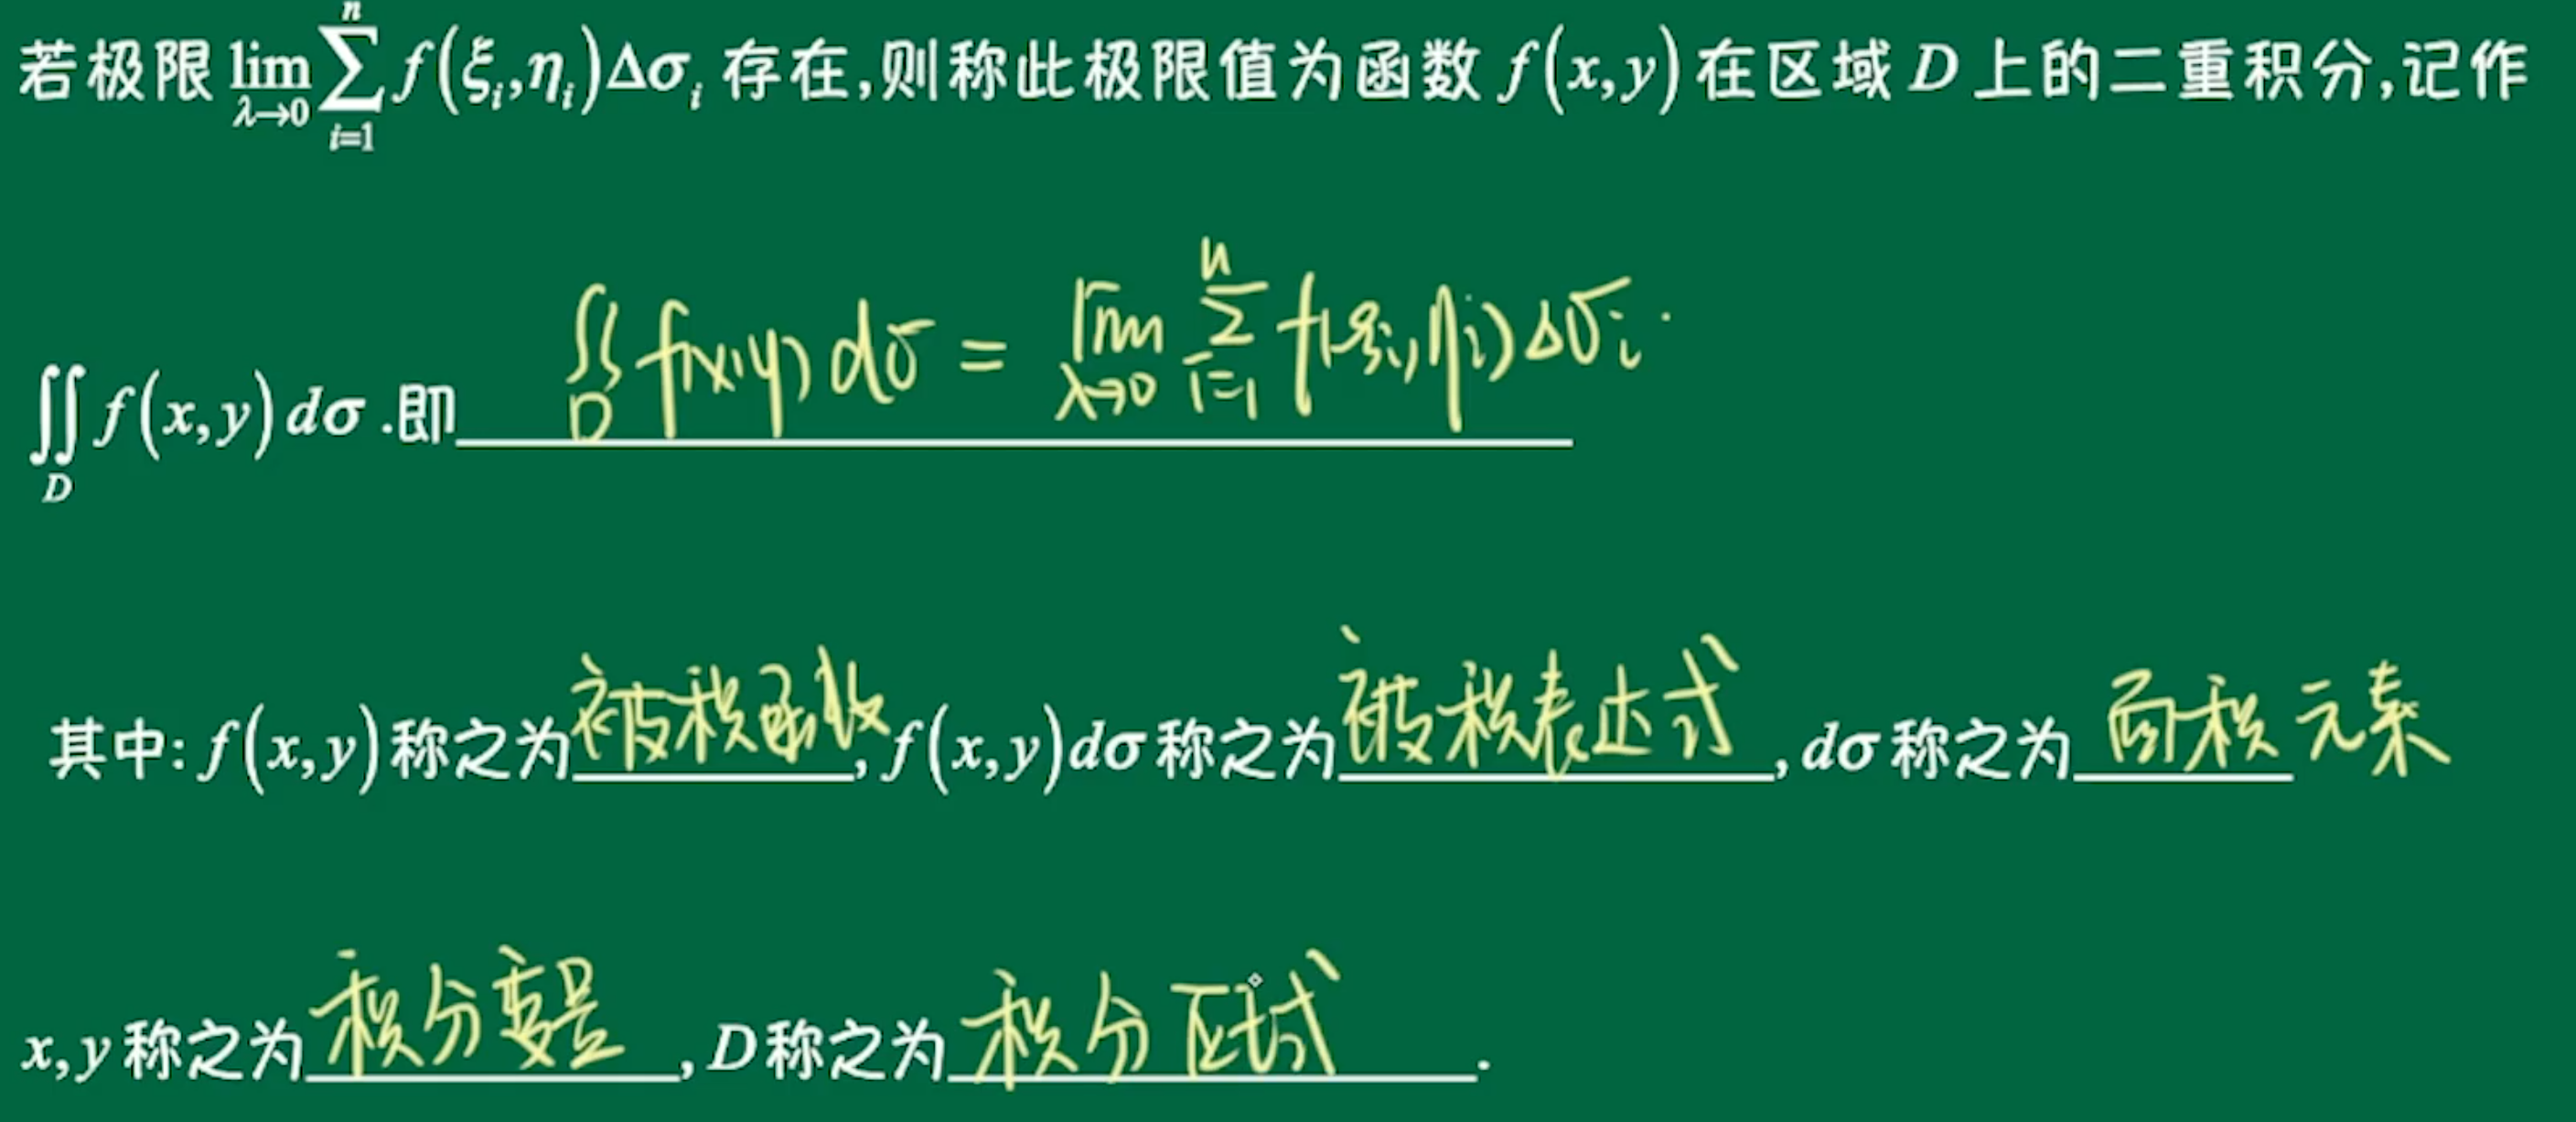 若极限 $\lim\limits_{\lambda\to0}\sum\limits_{i=1}^{n}f(\xi_i,\eta_i)\Delta\sigma_i$ 存在,则称此极限值为函数 $f(x,y)$ 在区域 $D$ 上的二重积分,记作
$\iint\limits_{D}f(x,y)d\sigma$ .即 $\iint\limits_{D}f(x,y)d\sigma=\lim\limits_{\lambda\to0}\sum\limits_{i=1}^{n}f(\xi_i,\eta_i)\Delta\sigma_i.$
其中: $f(x,y)$ 称之为被积函数, $f(x,y)d\sigma$ 称之为被积表达式, $d\sigma$ 称之为面积元素
$x,y$ 称之为积分变量, $D$ 称之为积分区域.